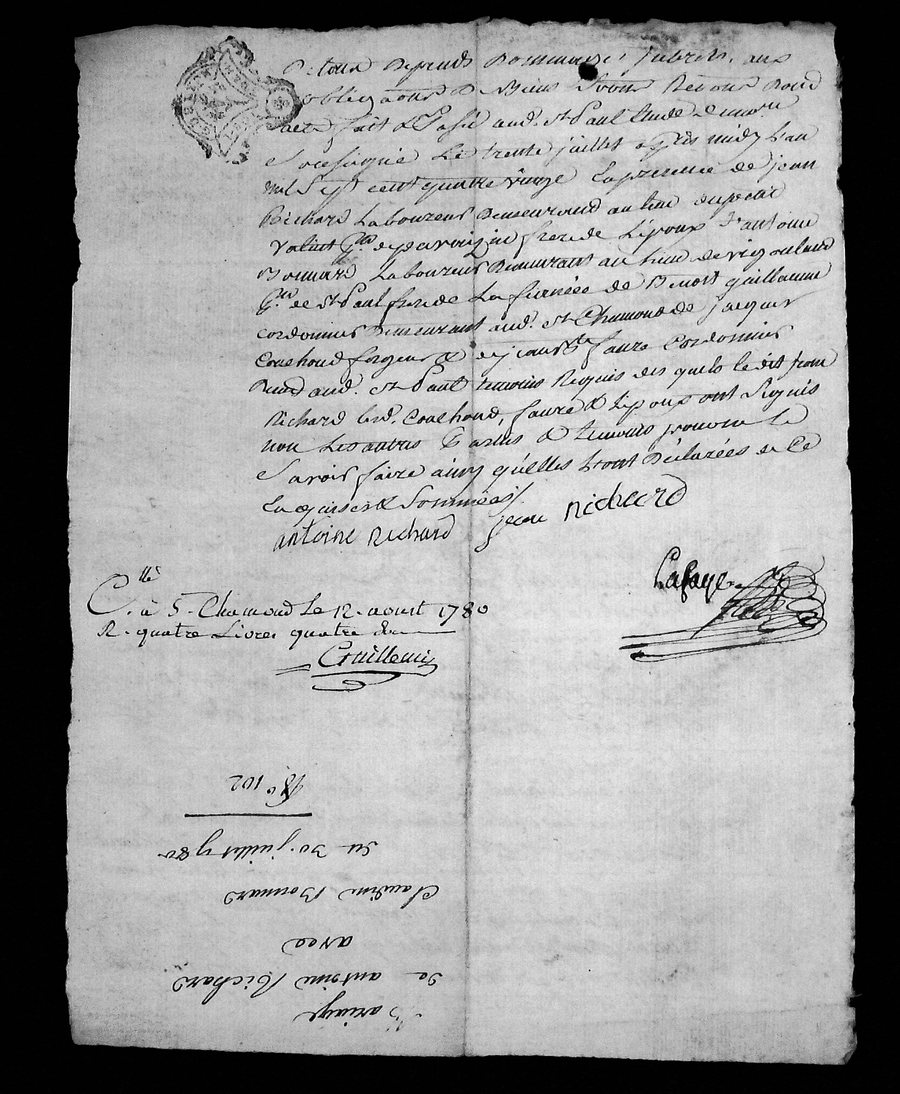 & tous Depends Dommages Interets, aux
obligaons & Biens Soums Renons Dont
acte fait & Passé aud. st Paul Etude du nore
Soussigné Le trente juillet apres midy L'an
mil Sept cent quatre vingt En presence de jean
Richard Laboureur Demeurant au lieu
frere de L'epoux d'antoine
Bonnard Laboureur Demeurant au lieu de
de st Paul frere de La fiancée de Benoit guillaume
cordonnier Demeurant aud. st Chamond de jacques
Couchoud forgeur & de jean Bte faure Cordonnier
Demt aud. st Paul temoins Requis des quels le dit jean
Richard led. Couchoud, faure & L'epoux ont Signés
non Les autres Parties & temoins pour ne le
Savoir faire ainsy qu'elles L'ont Déclarées de Ce
Enquises & Sommées
antoine Richard jean Richard
Lafaye
C.llé à St. Chamond Le 12. aoust 1780
R. quatre Livres quatre
Guillemin
Mariage
De antoine Richard
avec
Claudine Bonnard
Du 30. juillet 1780
No. 102